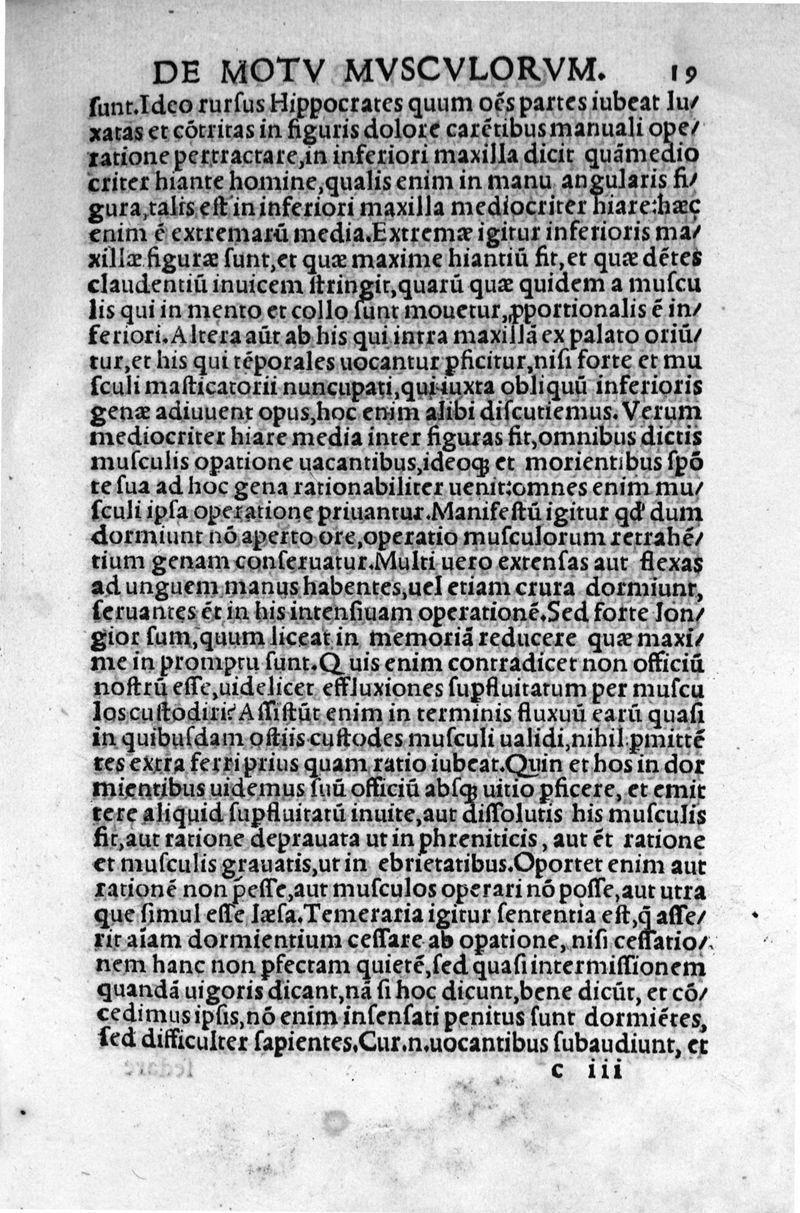 DE MOTV MVSCVLORVM. 19
ſunt.Ideo rurſus Hippocrates quum oẽs partes iubeat lu/
xatas et cõtritas in figuris dolore carẽtibus manuali ope/
ratione pertractare,in inferiori maxilla dicit quãmedio
criter hiante homine,qualis enim in manu angularis fi/
gura,talis eſt in inferiori maxilla mediocriter hiare:hæc
enim ẽ extremarũ media.Extremæ igitur inferioris ma/
xillæ figuræ ſunt,et quæ maxime hiantiũ fit,et quæ dẽtes
claudentiũ inuicem ſtringit,quarũ quæ quidem a muſcu
lis qui in mento et collo ſunt mouetur,ꝓportionalis ẽ in/
feriori.Altera aũt ab his qui intra maxillã ex palato oriũ/
tur,et his qui tẽporales uocantur ꝑficitur,niſi forte et mu
ſculi maſticatorii nuncupati,qui iuxta obliquũ inferioris
genæ adiuuent opus,hoc enim alibi diſcutiemus.Verum
mediocriter hiare media inter figuras fit,omnibus dictis
muſculis oꝑatione uacantibus,ideoqꝫ et morientibus ſpõ
te ſua ad hoc gena rationabiliter uenit:omnes enim mu/
ſculi ipſa operatione priuantur.Manifeſtũ igitur qd' dum
dormiunt nõ aperto ore,operatio muſculorum retrahẽ/
tium genam conſeruatur.Multi uero extenſas aut flexas
ad unguem manus habentes,uel etiam crura dormiunt,
ſeruantes ẽt in his intenſiuam operationẽ.Sed forte lon/
gior ſum,quum liceat in memoriã reducere quæ maxi/
me in promptu ſunt.Q uis enim contradicet non officiũ
noſtrũ eſſe,uidelicet effluxiones ſuꝑfluitatum per muſcu
los cuſtodiri?Aſſiſtũt enim in terminis fluxuũ earũ quaſi
in quibuſdam oſtiis cuſtodes muſculi ualidi,nihil ꝑmittẽ
tes extra ferri prius quam ratio iubeat.Quin et hos in dor
mientibus uidemus ſuũ officiũ abſqꝫ uitio ꝑficere, et emit
tere aliquid ſuꝑfluitatũ inuite,aut diſſolutis his muſculis
fit,aut ratione deprauata ut in phreniticis, aut ẽt ratione
et muſculis grauatis,ut in ebrietatibus.Oportet enim aut
rationẽ non p̃eſſe,aut muſculos operari nõ poſſe,aut utra
que ſimul eſſe læſa.Temeraria igitur ſententia eſt,q̃ aſſe/
rit aĩam dormientium ceſſare ab oꝑatione, niſi ceſſatio/
nem hanc non ꝑfectam quietẽ,ſed quaſi intermiſſionem
quandã uigoris dicant,nã ſi hoc dicunt,bene dicũt, et cõ/
cedimus ipſis,nõ enim inſenſati penitus ſunt dormiẽtes,
ſed difficulter ſapientes.Cur.n.uocantibus ſubaudiunt, et
c iii